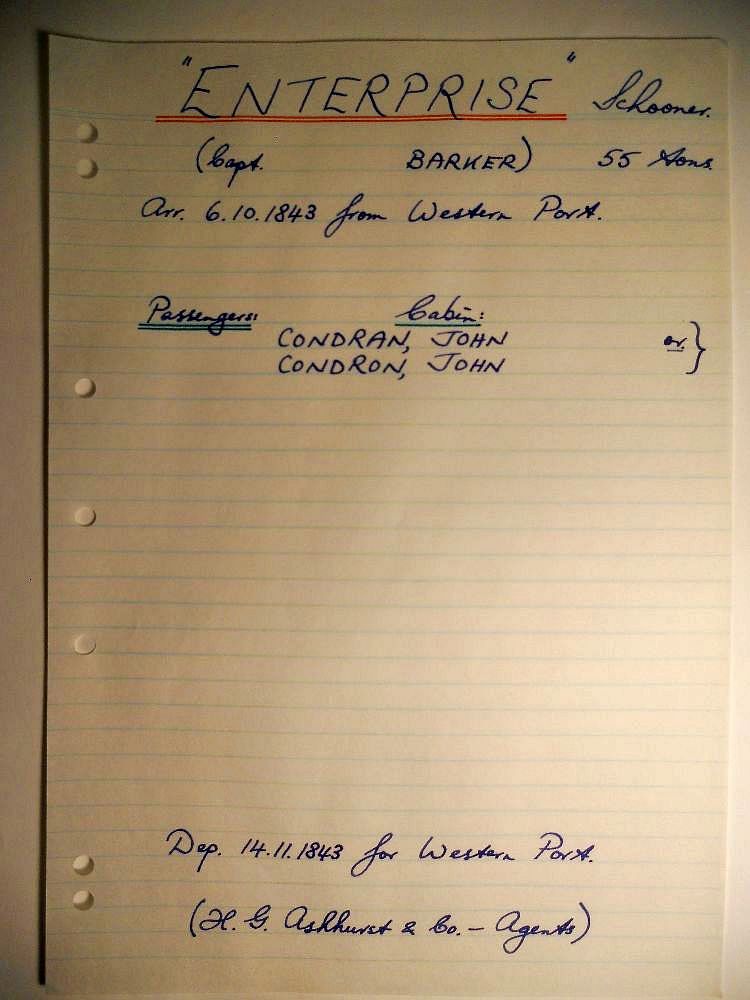 "ENTERPRISE" Schooner.
(Capt. BARKER) 55 tons.
Arr. 6.10.1843 from Western Port.
Passengers: Cabin:
CONDRAN, JOHN or }
CONDRON, JOHN
Dep. 14.11.1843 for Western Port.
(H. G. Ashhurst & Co. - Agents)